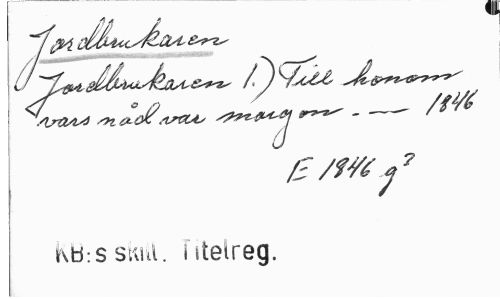 Jordbrukaren
Jordbrukaren 1.) Till honom
vars nåd var morgon. — 1846
E 1846 g³
KB:s skill. Titelreg.